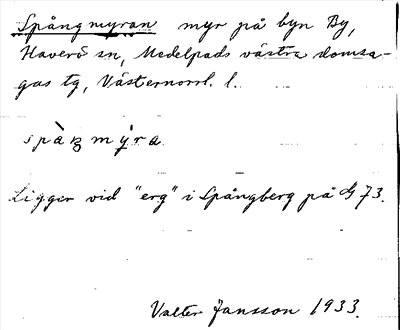 Spångmyran myr på byn By,
Haverö sn, Medelpads västra domsa-
gas tg, Västernorrl. l.
spàŋmýra
Ligger vid "erg" i Spångberg på G 73.
Valter Jansson 1933.